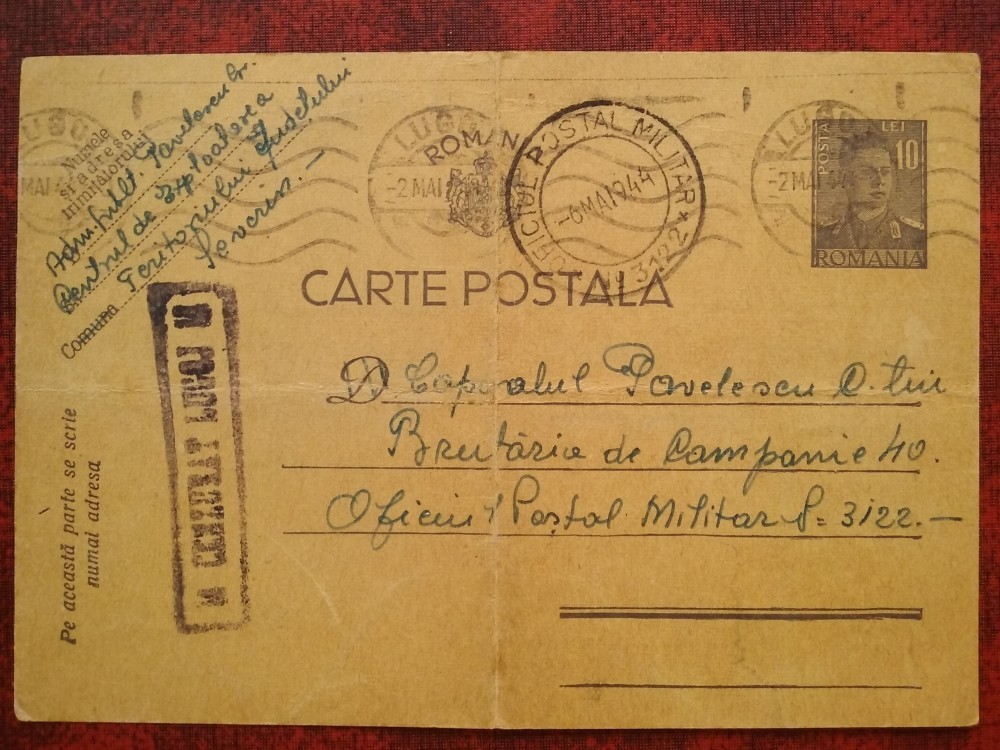 Numele
și adresa
înmînatorului
Adm. Pavelescu Gr.
Centrul de Exploatare a
Teritoriului Județului
Severin.
Comuna
LUGOJ
-2 MAI 44
ROMAN
OFICIUL POSTAL MILITAR
-6 MAI 944
Nr 3122
LUGOJ
-2 MAI 44
POSTA LEI
10
ROMANIA
CARTE POSTALA
CENZURAT LUGOJ
Pe această parte se scrie
numai adresa
D Caporalul Pavelescu C-tin
Brutăria de Campanie 40.
Oficiul Poștal Militar No 3122.—